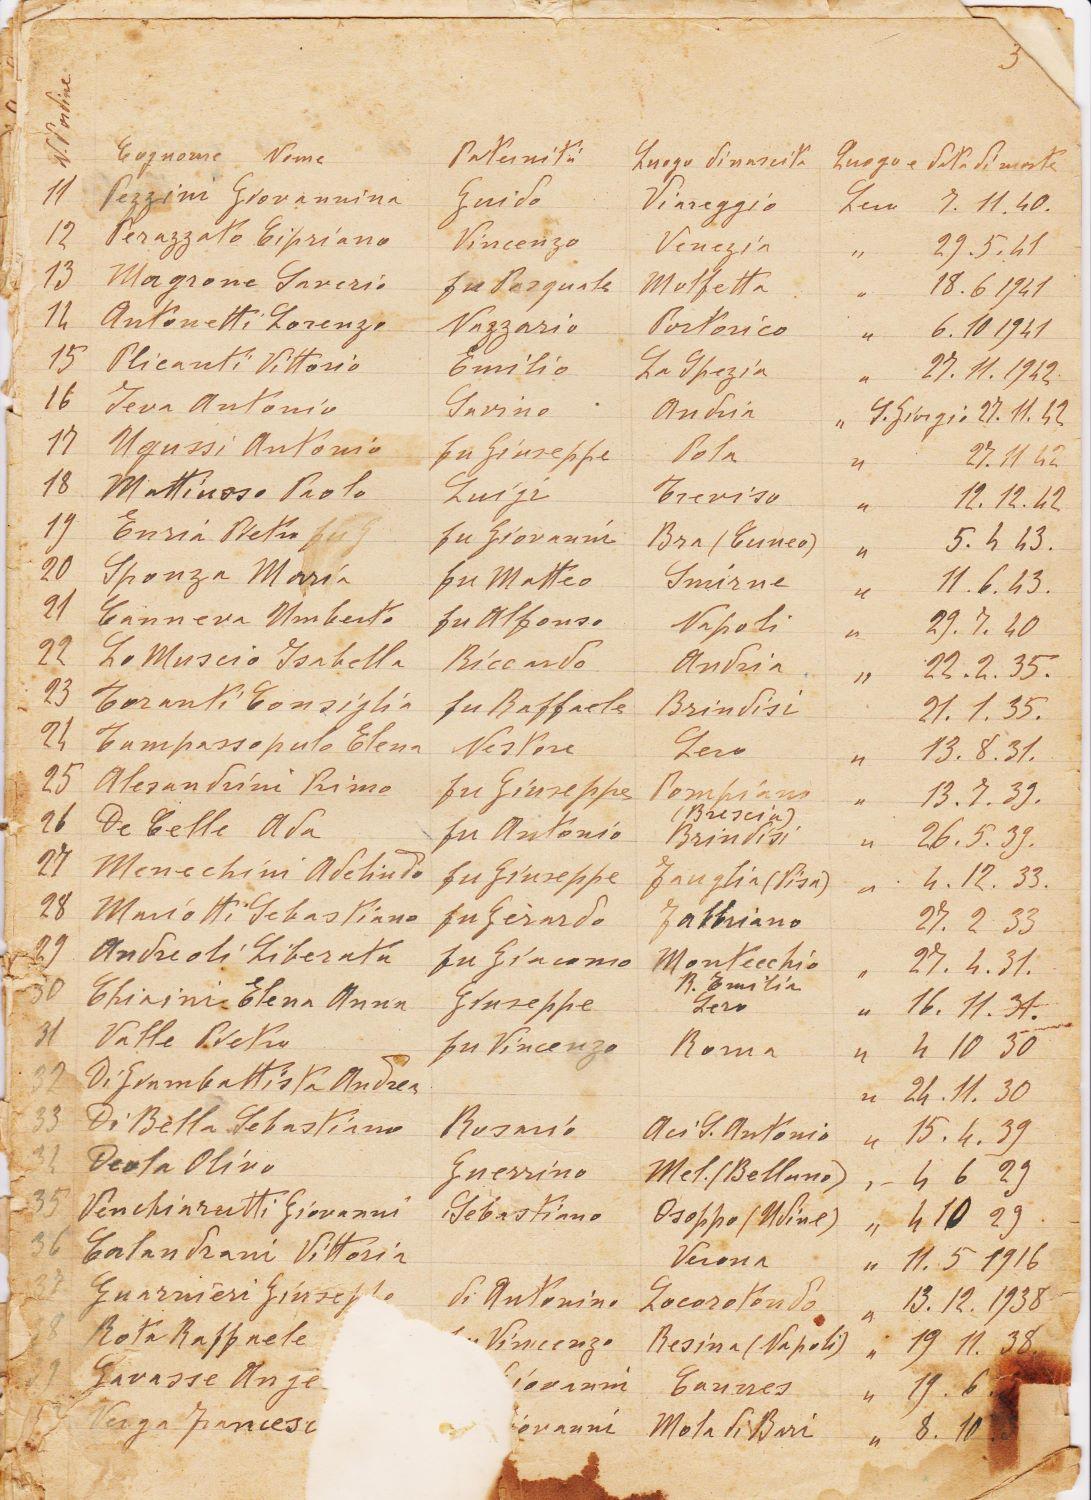 3
N. d'ordine Cognome Nome Paternità Luogo di nascita Luogo e data di morte
11 Pezzini Giovannina Guido Viareggio Lero 7. 11. 40.
12 Perazzato Cipriano Vincenzo Venezia " 29. 5. 41
13 Magrone Saverio fu Pasquale Molfetta " 18. 6 1941
14 Antonetti Lorenzo Nazzario Portorico " 6. 10 1941
15 Plicanti Vittorio Emilio La Spezia " 27. 11. 1942
16 Ieva Antonio Savino Andria " S. Giorgio 27. 11. 42
17 Ugussi Antonio fu Giuseppe Pola " 27. 11 42
18 Mattiusso Paolo Luigi Treviso " 12. 12. 42
19 Enria Pietro fu G fu Giovanni Bra (Cuneo) " 5. 4 43.
20 Sponza Maria fu Matteo Smirne " 11. 6. 43.
21 Canneva Umberto fu Alfonso Napoli " 29. 7. 40
22 Lo Muscio Isabella Riccardo Andria " 22. 2. 35.
23 Taranti Consiglia fu Raffaele Brindisi 21. 1. 35.
24 Tumpassopulo Elena Nestore Lero " 13. 8. 31.
25 Alesandrini Primo fu Giuseppe Pompiano " 13. 7. 39.
(Brescia)
26 De Celle Ada fu Antonio Brindisi " 26. 5. 39.
27 Menechini Adelindo fu Giuseppe Fauglia (Pisa) " 4. 12. 33.
28 Mariotti Sebastiano fu Gerardo Fabbriano 27. 2 33
29 Andreoli Liberata fu Giacomo Montecchio " 27. 4. 31.
R. Emilia
30 Chiarini Elena Anna Giuseppe Lero " 16. 11. 31.
31 Valle Pietro fu Vincenzo Roma " 4 10 30
32 Di Giambattista Andrea " 24. 11. 30
33 Di Bella Sebastiano Rosario Aci S. Antonio " 15. 4. 39
34 Deola Olivo Guerrino Mel. (Belluno) " 4 6 29
35 Venchiarutti Giovanni Sebastiano Osoppo (Udine) " 4 10 29
36 Calandrani Vittoria Verona " 11. 5 1916
37 Guarnieri Giuseppe di Antonino Locorotondo " 13. 12. 1938
8 Rota Raffaele fu Vincenzo Resina (Napoli) " 19 11. 38.
9 Gavasse Ange Giovanni Cannes " 19. 6.
Verga Francesc Giovanni Mola di Bari " 8. 10